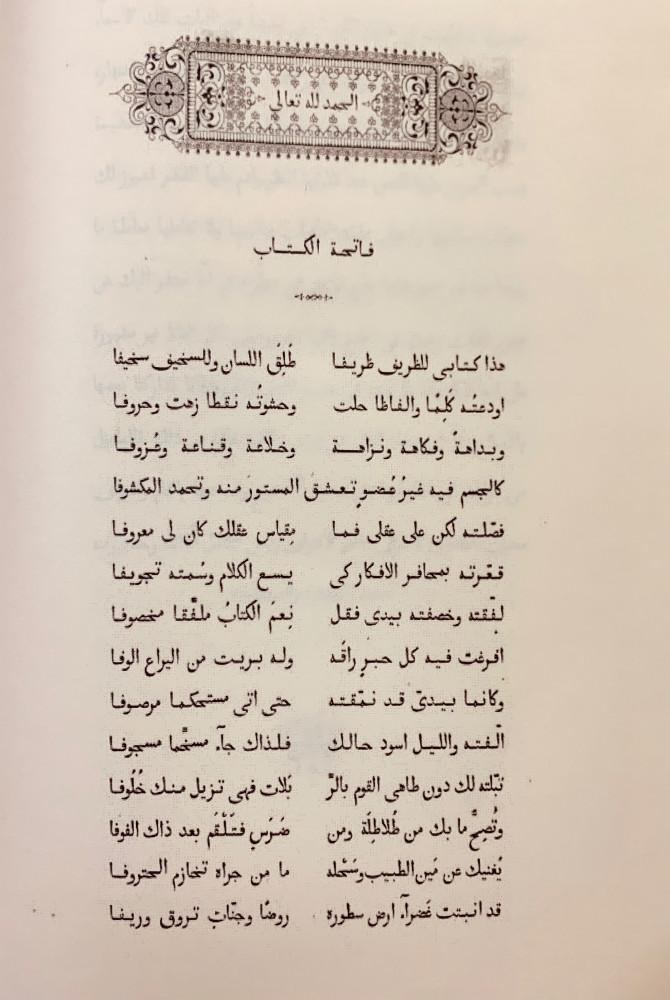 الحمد لله تعالى
فاتحة الكتاب
هذا كتابي للظريف ظريفا طَلِق اللسان وللسخيف سخيفا
اودعتُه كَلِمًا والفاظا حلت وحشوتُه نقطا زهت وحروفا
وبداهةً وفكاهة ونزاهة وخلاعة وقناعة وعُزوفا
كالجسم فيه غيرُ عُضوٍ تعشق المستورَ منه وتحمد المكشوفا
فصّلته لكن على عقلى فما مِقياس عقلك كان لى معروفا
قعّرته بمحافر الافكار كى يسع الكلام وسُمته تجويفا
لفّقته وخصفته بيدى فقل نِعمَ الكتابُ ملفّقا مخصوفا
افرغت فيه كل حبرٍ راقَه وله بريت من اليراع الوفا
وكانما بيدىّ قد نمّقته حتى اتى مستحكما مرصوفا
الّفته والليل اسود حالك فلذاك جآء مسخّما مسجوفا
تبّلته لك دون طاهى القوم بالرَّ بَلات فهى تزيل منك خُلُوفا
وتُصِحُّ ما بك من طُلاطِلَة ومن ضَرَسٍ فتَلْقَم بعد ذاك الفوفا
يُغنيك عن مَين الطبيب وسَحْله ما من جراه تخازم الحتروفا
قد انبتت غَضرآء ارض سطوره روضًا وجنّاتٍ تروق وريفا